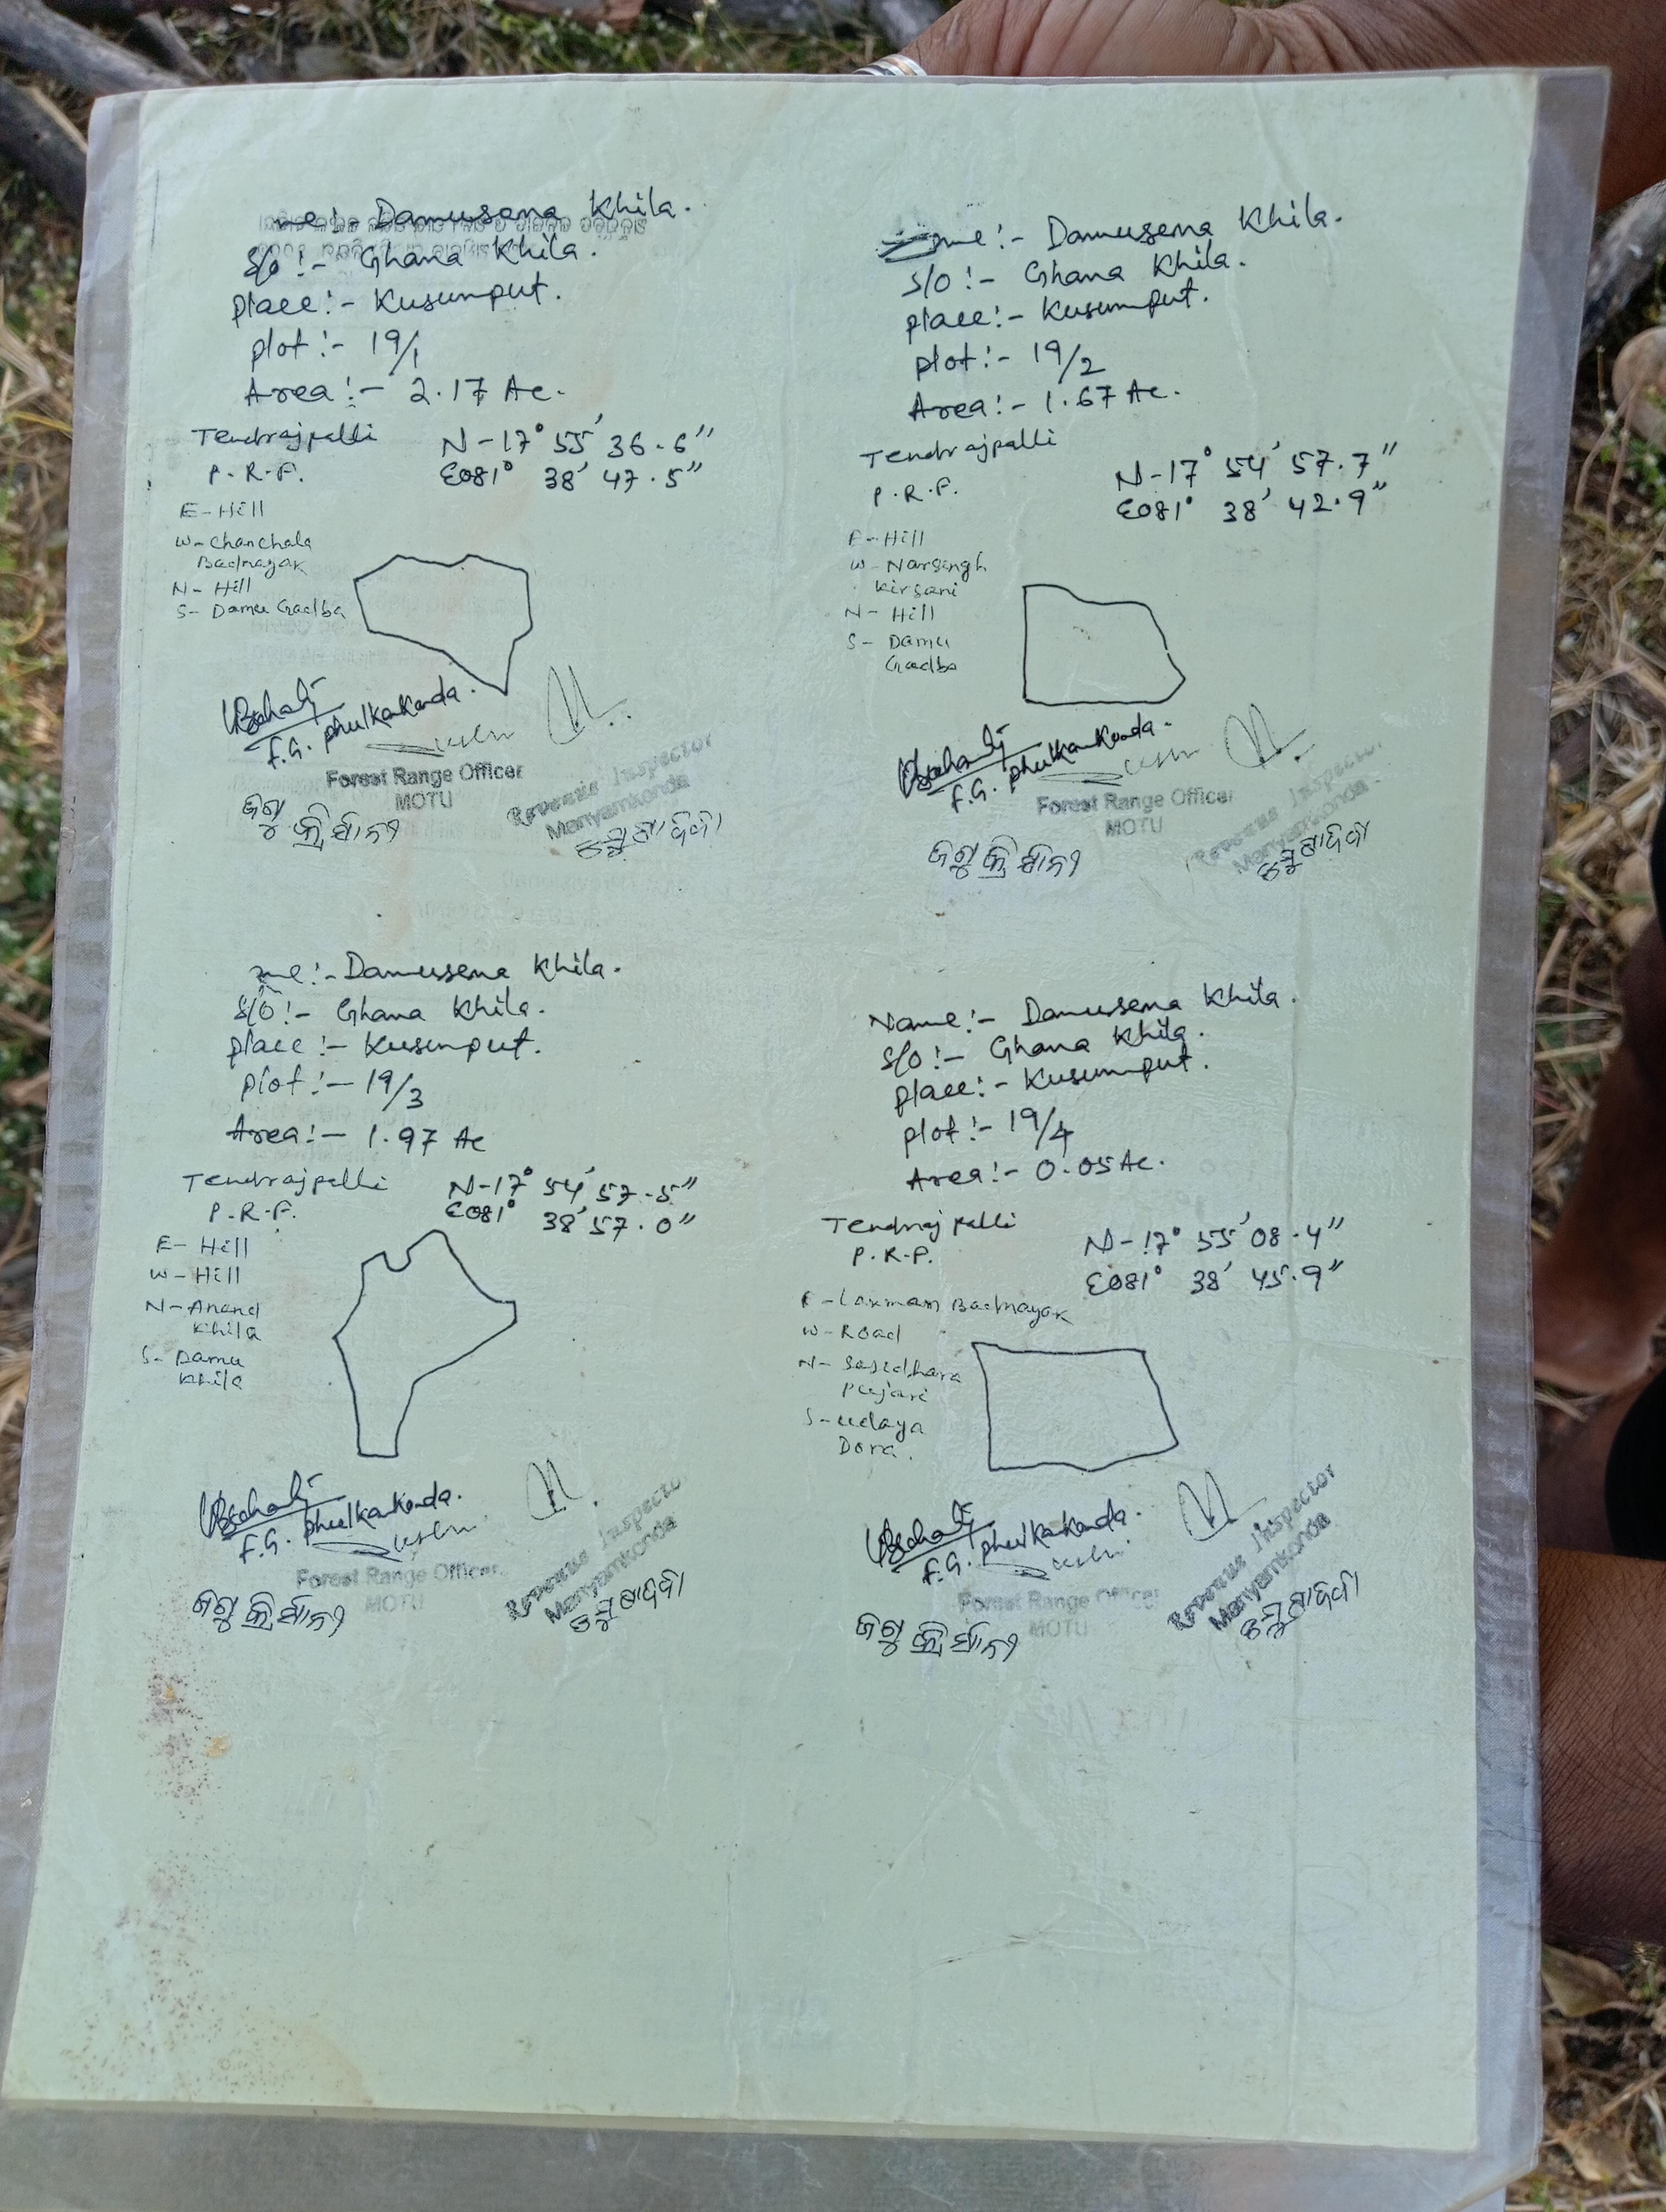 me:- Damusena Khila.
S/o :- Ghana Khila.
place:- Kusumput.
plot :- 19/1
Area:- 2.17 Ac.
Tendrajpalli
P.R.F.
N-17° 55' 36.6"
E081° 38' 47.5"
E-Hill
W-Chanchala
Badnayak
N-Hill
S- Damu Gadba
F.G. Phulkakonda.
Forest Range Officer
MOTU
Revenue Inspector
Manyamkonda
me:- Damusena Khila.
S/o :- Ghana Khila.
place:- Kusumput.
plot:- 19/2
Area:- 1.67 Ac.
Tendrajpalli
P.R.F.
N-17° 54' 57.7"
E081° 38' 42.9"
E-Hill
W-Narsingh
Kirsani
N-Hill
S- Damu
Gadba
F.G. Phulkakonda.
Forest Range Officer
MOTU
Revenue Inspector
Manyamkonda
me:- Damusena Khila.
S/o:- Ghana Khila.
place:- Kusumput.
plot:- 19/3
Area:- 1.97 Ac
Tendrajpalli
P.R.F.
N-17° 54' 57.5"
E081° 38' 57.0"
E-Hill
W-Hill
N-Anand
Khila
S-Damu
Khila
F.G. Phulkakonda.
Forest Range Officer
MOTU
Revenue Inspector
Manyamkonda
Name:- Damusena Khila.
S/o:- Ghana Khila.
place:- Kusumput.
plot:- 19/4
Area:- 0.05 Ac.
Tendrajpalli
P.R.F.
N-17° 55' 08.4"
E081° 38' 45.9"
E-Laxman Badnayak
W-Road
N-Sasidhara
Pujari
S-Udaya
Dora.
F.G. Phulkakonda.
Forest Range Officer
MOTU
Revenue Inspector
Manyamkonda